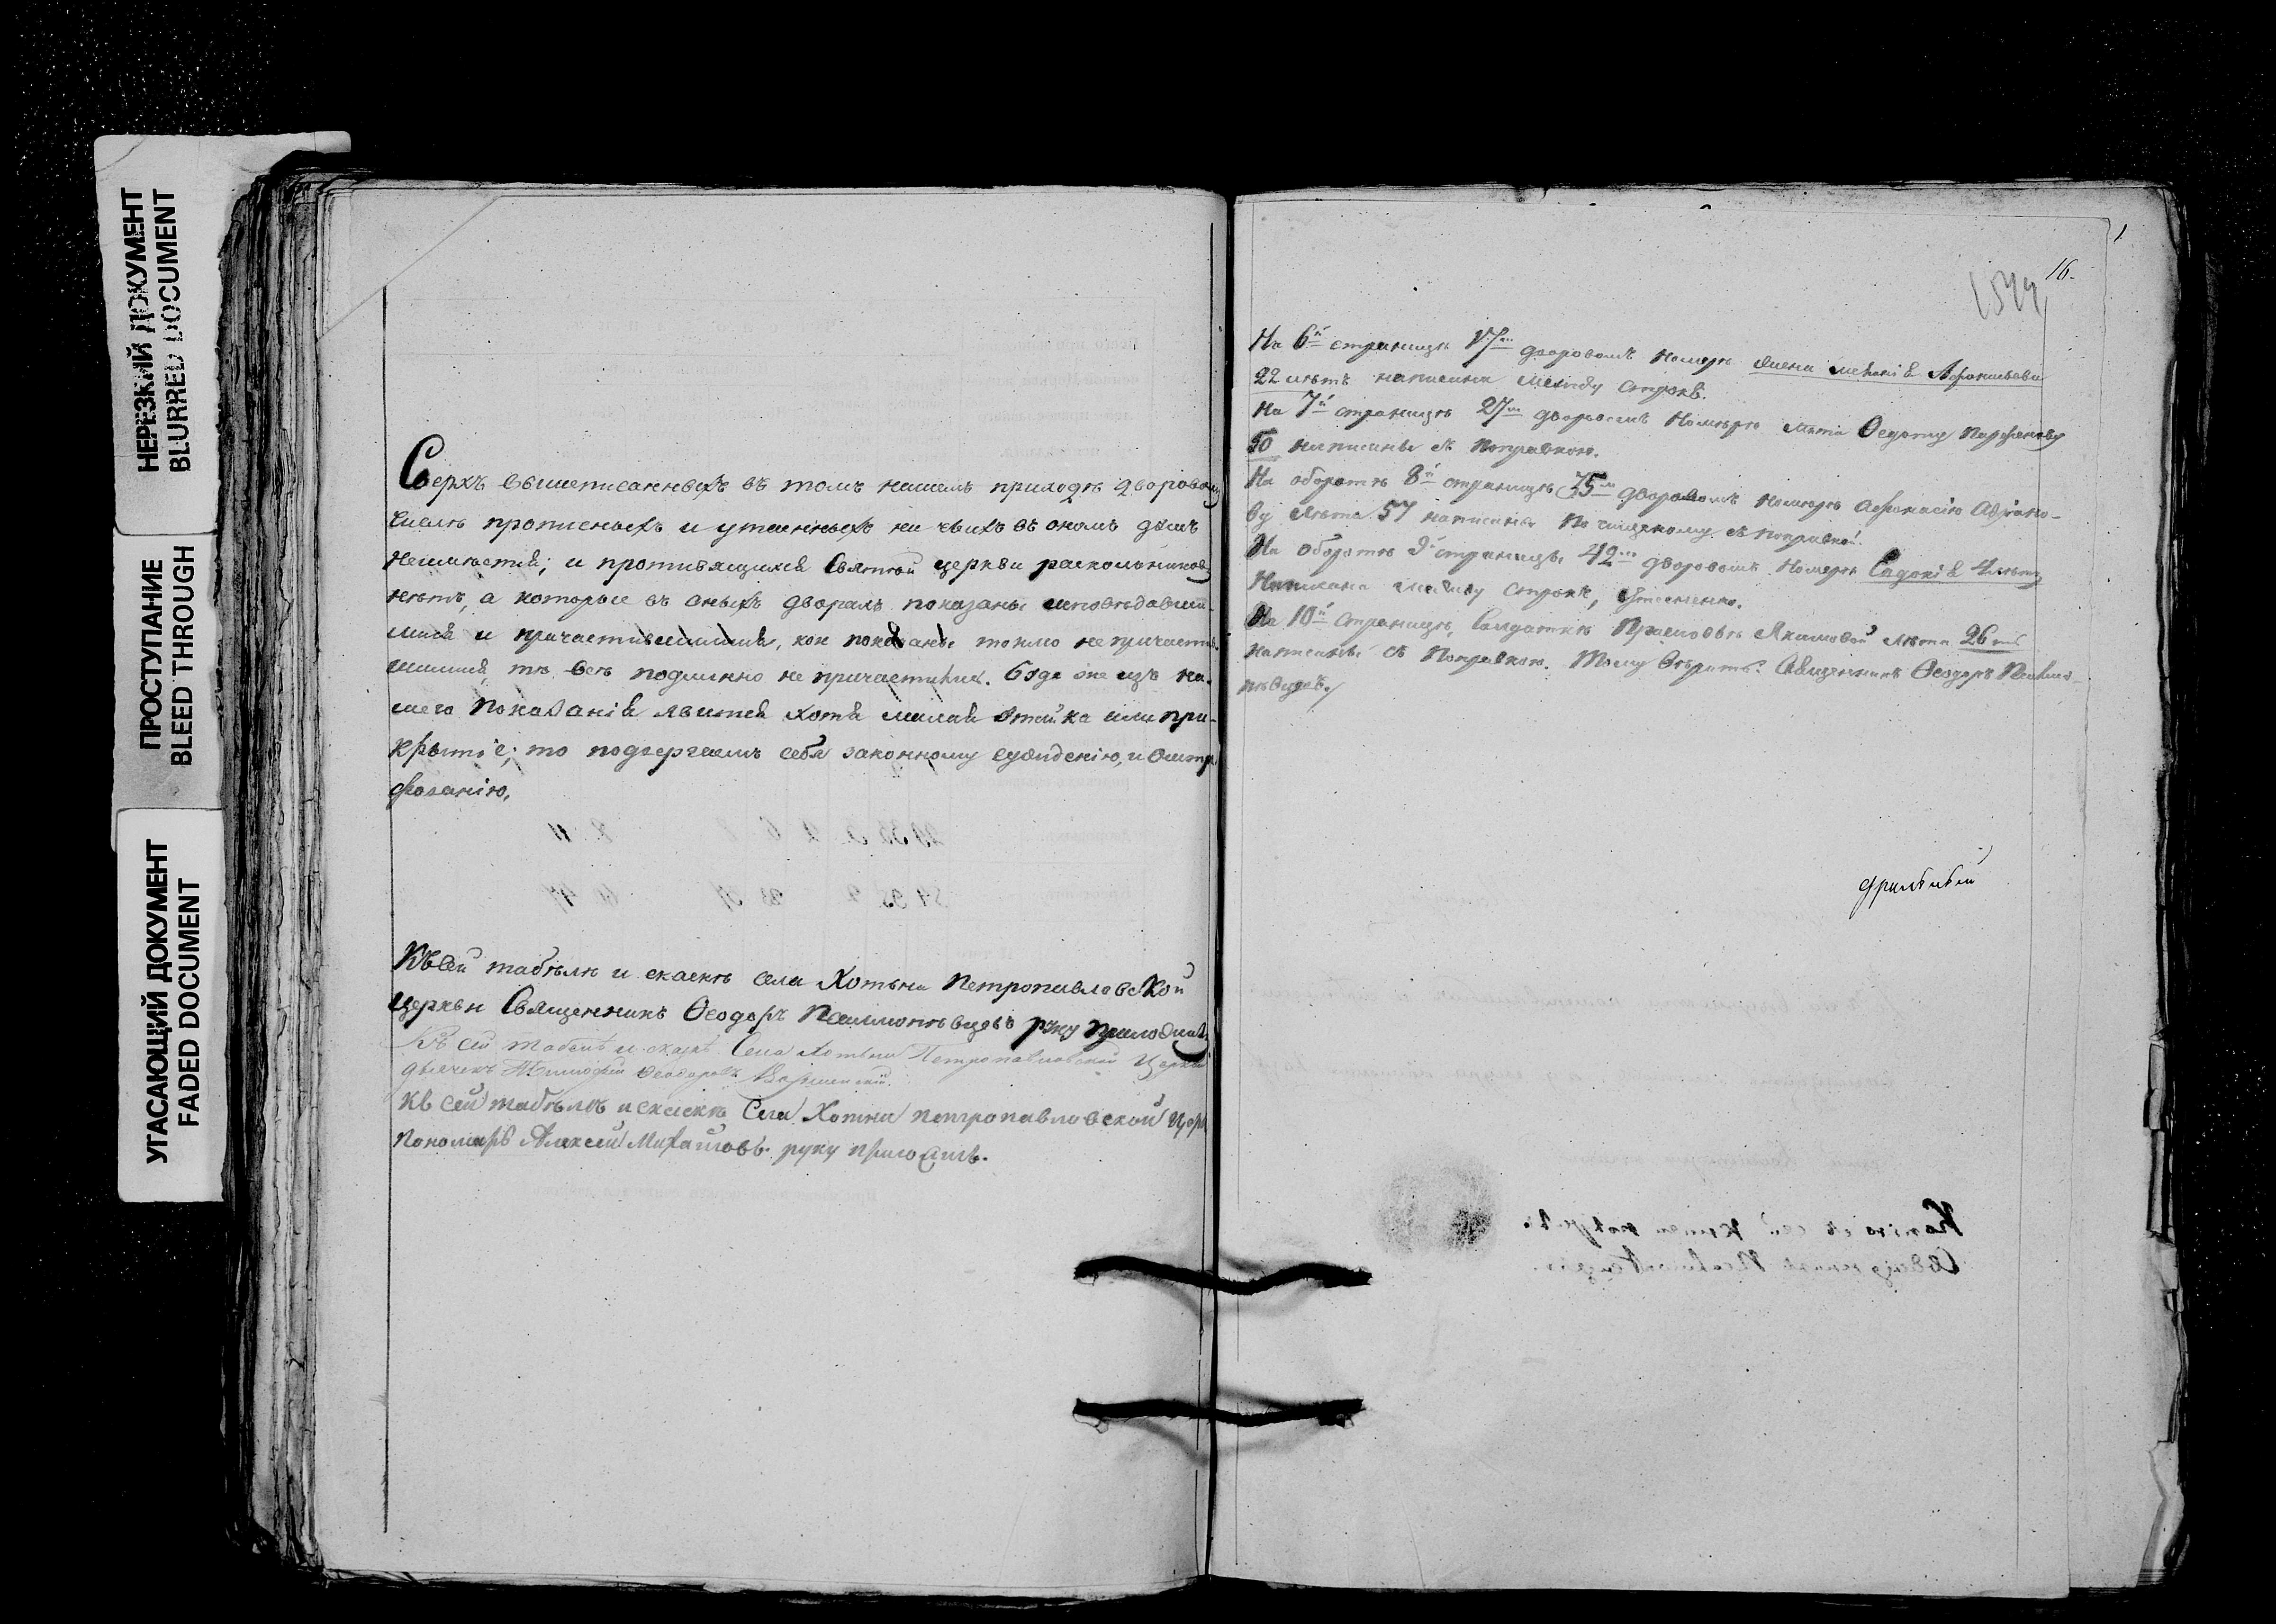 НЕРЕЗКИЙ ДОКУМЕНТ
BLURRED DOCUMENT
ПРОСТУПАНИЕ
BLEED THROUGH
УГАСАЮЩИЙ ДОКУМЕНТ
FADED DOCUMENT
Сверхъ вышеписанныхъ въ томъ нашемъ приходѣ дворовому
числѣ прописныхъ и утаенныхъ ни чьихъ въ ономъ душъ
неимѣется; и противящихся Святой церкви раскольниковъ
нѣтъ, а которые въ оныхъ дворахъ показаны исповѣдавши-
мися и причастившимися, кои показаны токмо не причастив-
шимися, тѣ всѣ подлинно не причастились. Буде же изъ на-
шего показанія явится хотя малая утайка или при-
крытіе; то подвергаемъ себя законному сужденію, и оштра
фованію,
Къ сей табѣлѣ и скаскѣ села Хотьни Петропавловской
Церкви Священникъ Ѳеодоръ руку приложилъ
Къ сей табелѣ и скаскѣ Села Хотьни Петропавловской Церкви
дьячекъ Тимофей Ѳеодоровъ
Къ сей табѣлѣ и скаскѣ Села Хотни петропавловской Церк
пономарь Алексей Михайловъ руку приложилъ.
16.
1544
На 6й страницѣ 17мъ дворовомъ номерѣ Афонасьева
22 лѣтъ написана между строкъ.
На 7й страницѣ 27мъ дворовомъ номѣрѣ лѣта Ѳедоту Парфенову
50 написаны съ поправкою.
На оборотѣ 8й страницы 35мъ дворовомъ номерѣ Афонасію Адріано-
ву лѣта 57 написаны по чищеному съ поправкой.
На оборотѣ 9й страницы 42мъ дворовомъ номерѣ
написана между строкъ,
На 10й страницѣ, Солдаткѣ Прасковьѣ Якимовой лѣта 26ть
написаны съ поправкою. Тому вѣрить. Священникъ Ѳеодоръ
Копію съ сей книги
Священникъ